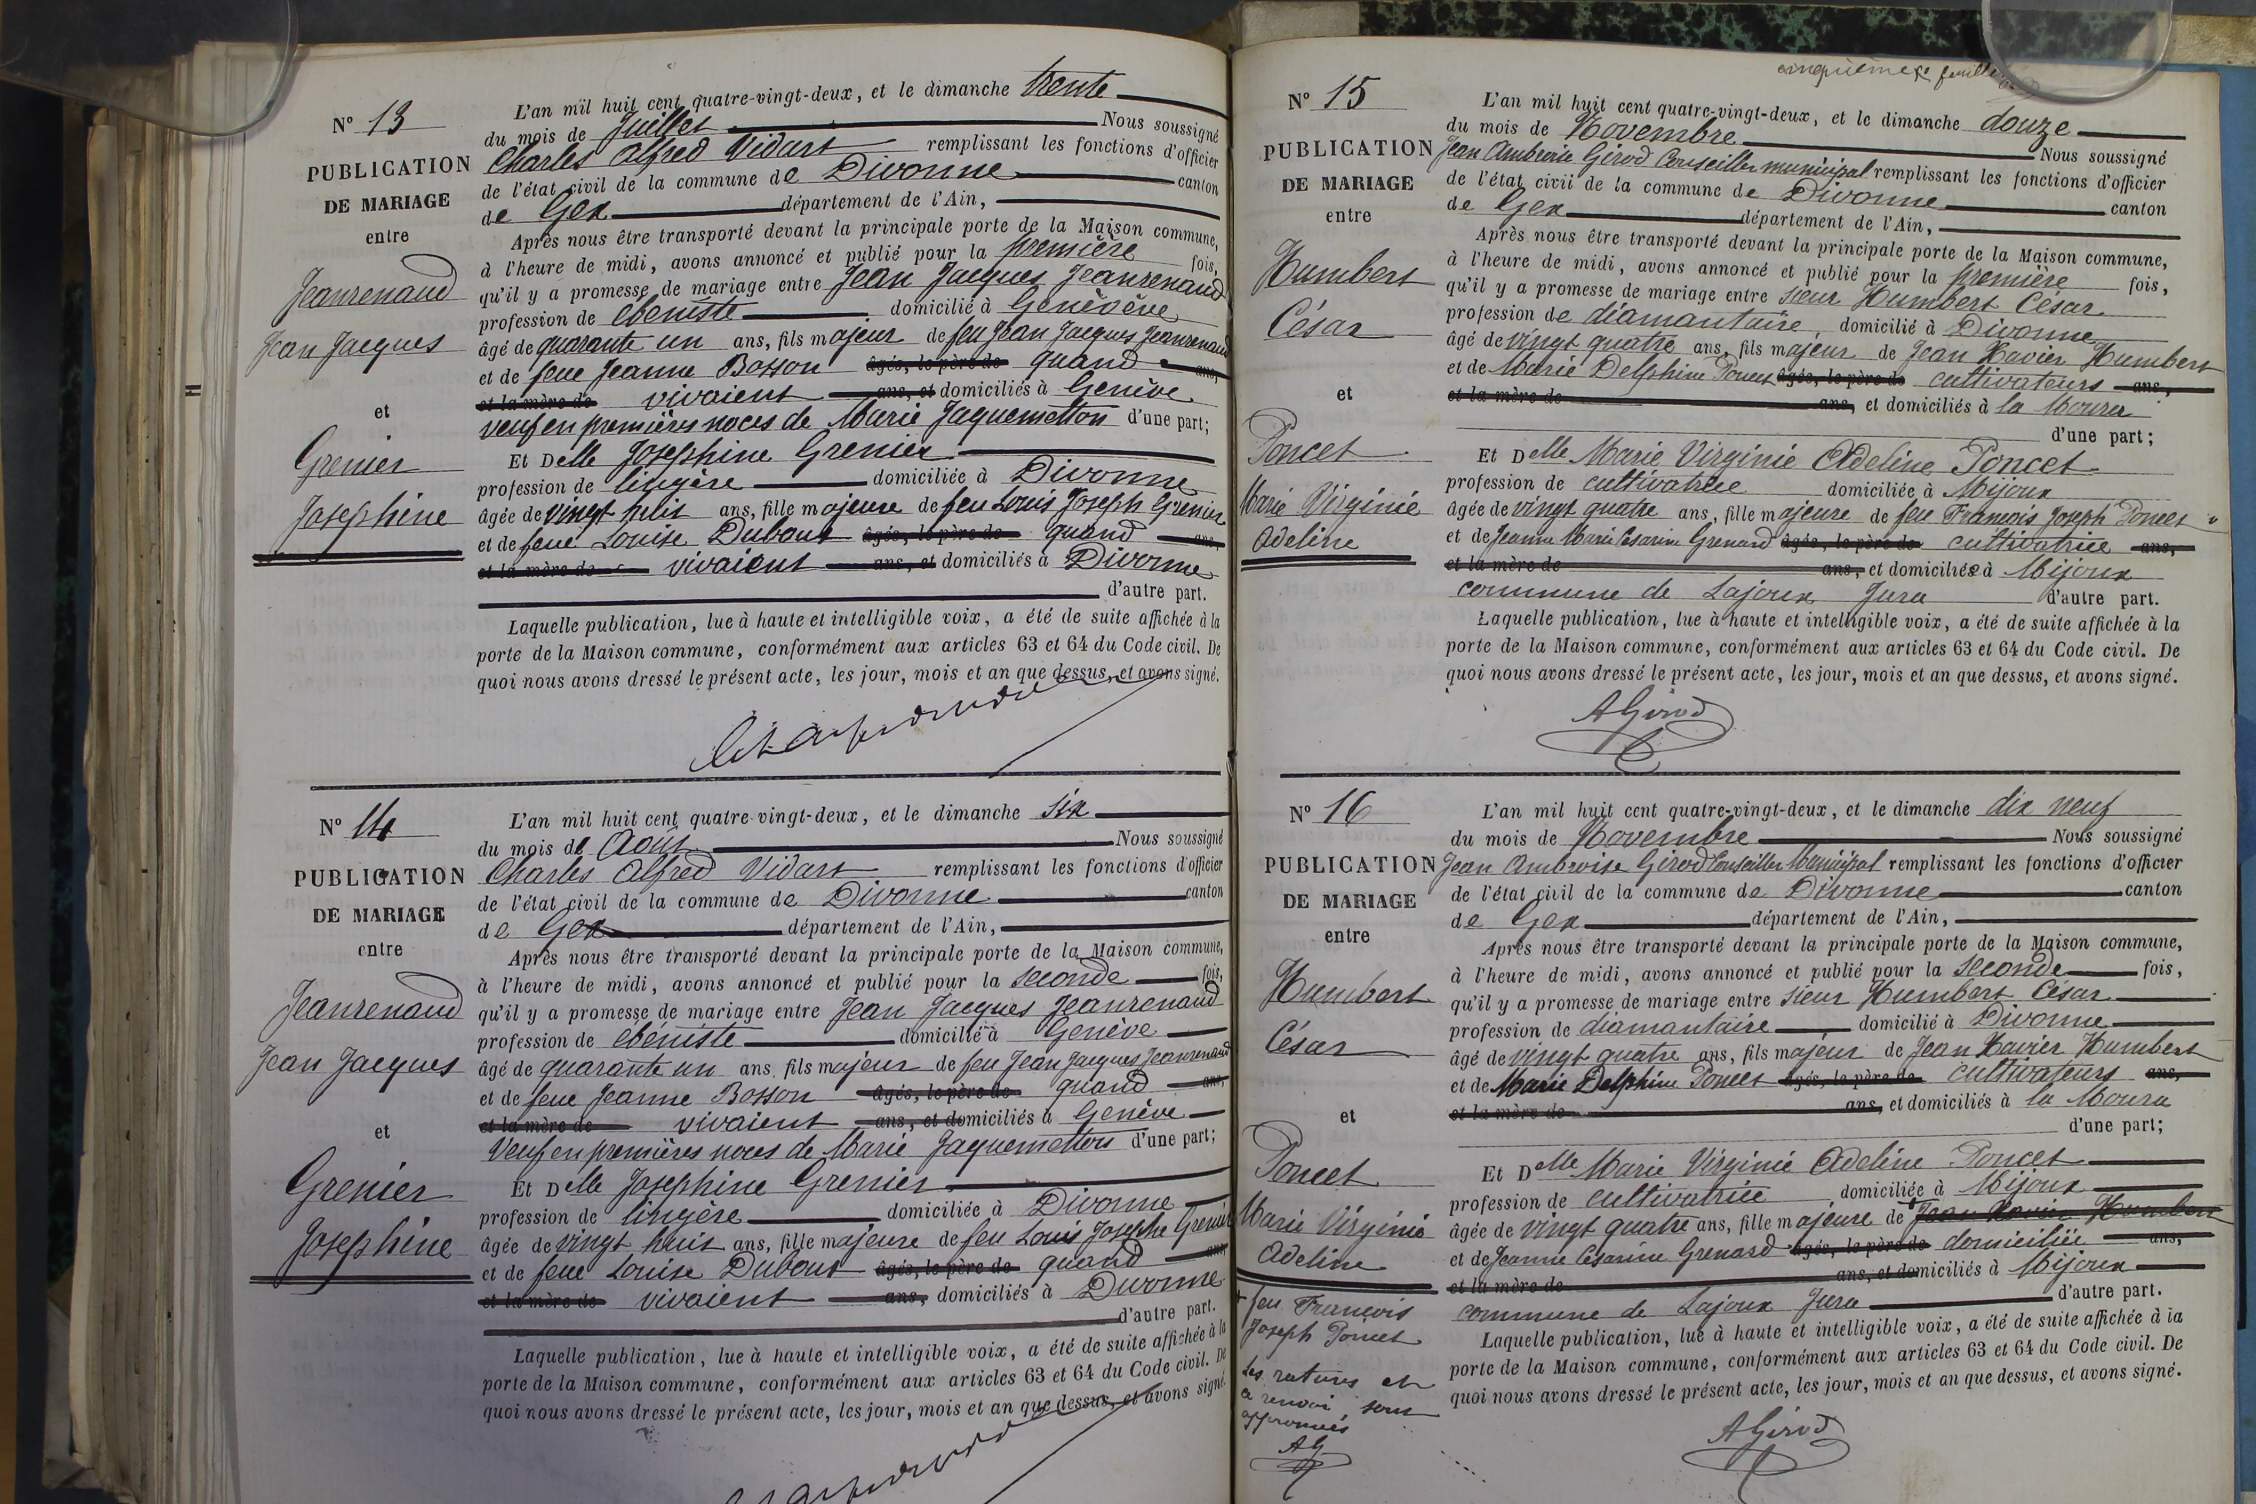 N° 13
PUBLICATION
DE MARIAGE
entre
Jeanrenaud
Jean Jacques
et
Grenier
Josephine
L'an mil huit cent quatre-vingt-deux, et le dimanche trente
du mois de Juillet Nous soussigné
Charles Alfred Vidart remplissant les fonctions d'officier
de l'état civil de la commune de Divonne canton
de Gex département de l'Ain,
Après nous être transporté devant la principale porte de la Maison commune,
à l'heure de midi, avons annoncé et publié pour la première fois,
qu'il y a promesse de mariage entre Jean Jacques Jeanrenaud
profession de ébéniste domicilié à Genèvève
âgé de quarante un ans, fils majeur de feu Jean Jacques Jeanrenaud
et de feue Jeanne Bosson âgés, le père de quand ans,
et la mère de vivaient ans, et domiciliés à Genève
veuf en premières noces de Marie Jaquemetton d'une part;
Et Delle Josephine Grenier
profession de lingère domiciliée à Divonne
âgée de vingt huit ans, fille majeure de feu Louis Joseph Grenier
et de feue Louise Dubout âgés, le père de quand ans,
et la mère de vivaient ans, et domiciliés à Divonne
d'autre part.
Laquelle publication, lue à haute et intelligible voix, a été de suite affichée à la
porte de la Maison commune, conformément aux articles 63 et 64 du Code civil. De
quoi nous avons dressé le présent acte, les jour, mois et an que dessus, et avons signé.
N° 14
PUBLICATION
DE MARIAGE
entre
Jeanrenaud
Jean Jacques
et
Grenier
Josephine
L'an mil huit cent quatre-vingt-deux, et le dimanche six
du mois de Août Nous soussigné
Charles Alfred Vidart remplissant les fonctions d'officier
de l'état civil de la commune de Divonne canton
de Gex département de l'Ain,
Après nous être transporté devant la principale porte de la Maison commune,
à l'heure de midi, avons annoncé et publié pour la seconde fois,
qu'il y a promesse de mariage entre Jean Jacques Jeanrenaud
profession de ébéniste domicilié à Genève
âgé de quarante un ans, fils majeur de feu Jean Jacques Jeanrenaud
et de feue Jeanne Bosson âgés, le père de quand ans,
et la mère de vivaient ans, et domiciliés à Genève
Veuf en premières noces de Marie Jaquemetton d'une part;
Et Delle Josephine Grenier
profession de lingère domiciliée à Divonne
âgée de vingt huit ans, fille majeure de feu Louis Josephe Grenier
et de feue Louise Dubout âgés, le père de quand ans,
et la mère de vivaient ans, domiciliés à Divonne
d'autre part.
Laquelle publication, lue à haute et intelligible voix, a été de suite affichée à la
porte de la Maison commune, conformément aux articles 63 et 64 du Code civil. De
quoi nous avons dressé le présent acte, les jour, mois et an que dessus, et avons signé.
cinquième feuille
N° 15
PUBLICATION
DE MARIAGE
entre
Humbert
César
et
Poncet
Marie Virginie
Adeline
L'an mil huit cent quatre-vingt-deux, et le dimanche douze
du mois de Novembre Nous soussigné
Jean Ambroise Girod Conseiller municipal remplissant les fonctions d'officier
de l'état civil de la commune de Divonne canton
de Gex département de l'Ain,
Après nous être transporté devant la principale porte de la Maison commune,
à l'heure de midi, avons annoncé et publié pour la première fois,
qu'il y a promesse de mariage entre sieur Humbert César
profession de diamantaire, domicilié à Divonne
âgé de vingt quatre ans, fils majeur de Jean Xavier Humbert
et de Marie Delphine Poncet âgés, le père de cultivateurs ans,
et la mère de ans, et domiciliés à la Moura
d'une part;
Et Delle Marie Virginie Adeline Poncet
profession de cultivatrice domiciliée à Mijoux
âgée de vingt quatre ans, fille majeure de feu François Joseph Poncet
et de Jeanne Marie Césarine Grenard âgés, le père de cultivatrice ans,
et la mère de ans, et domiciliée à Mijoux
commune de Lajoux Jura d'autre part.
Laquelle publication, lue à haute et intelligible voix, a été de suite affichée à la
porte de la Maison commune, conformément aux articles 63 et 64 du Code civil. De
quoi nous avons dressé le présent acte, les jour, mois et an que dessus, et avons signé.
A Girod
N° 16
PUBLICATION
DE MARIAGE
entre
Humbert
César
et
Poncet
Marie Virginie
Adeline
+ feu François
Joseph Poncet
Les ratures et
ce renvoi sont
approuvés
AG
L'an mil huit cent quatre-vingt-deux, et le dimanche dix neuf
du mois de Novembre Nous soussigné
Jean Ambroise Girod Conseiller Municipal remplissant les fonctions d'officier
de l'état civil de la commune de Divonne canton
de Gex département de l'Ain,
Après nous être transporté devant la principale porte de la Maison commune,
à l'heure de midi, avons annoncé et publié pour la seconde fois,
qu'il y a promesse de mariage entre sieur Humbert César
profession de diamantaire domicilié à Divonne
âgé de vingt quatre ans, fils majeur de Jean Xavier Humbert
et de Marie Delphine Poncet âgés, le père de cultivateurs ans,
et la mère de ans, et domiciliés à la Moura
d'une part;
Et Delle Marie Virginie Adeline Poncet
profession de cultivatrice domiciliée à Mijoux
âgée de vingt quatre ans, fille majeure de + Jean Xavier Humbert
et de Jeanne Césarine Grenard âgés, le père de domiciliée ans,
et la mère de ans, et domiciliés à Mijoux
commune de Lajoux Jura d'autre part.
Laquelle publication, lue à haute et intelligible voix, a été de suite affichée à la
porte de la Maison commune, conformément aux articles 63 et 64 du Code civil. De
quoi nous avons dressé le présent acte, les jour, mois et an que dessus, et avons signé.
A Girod